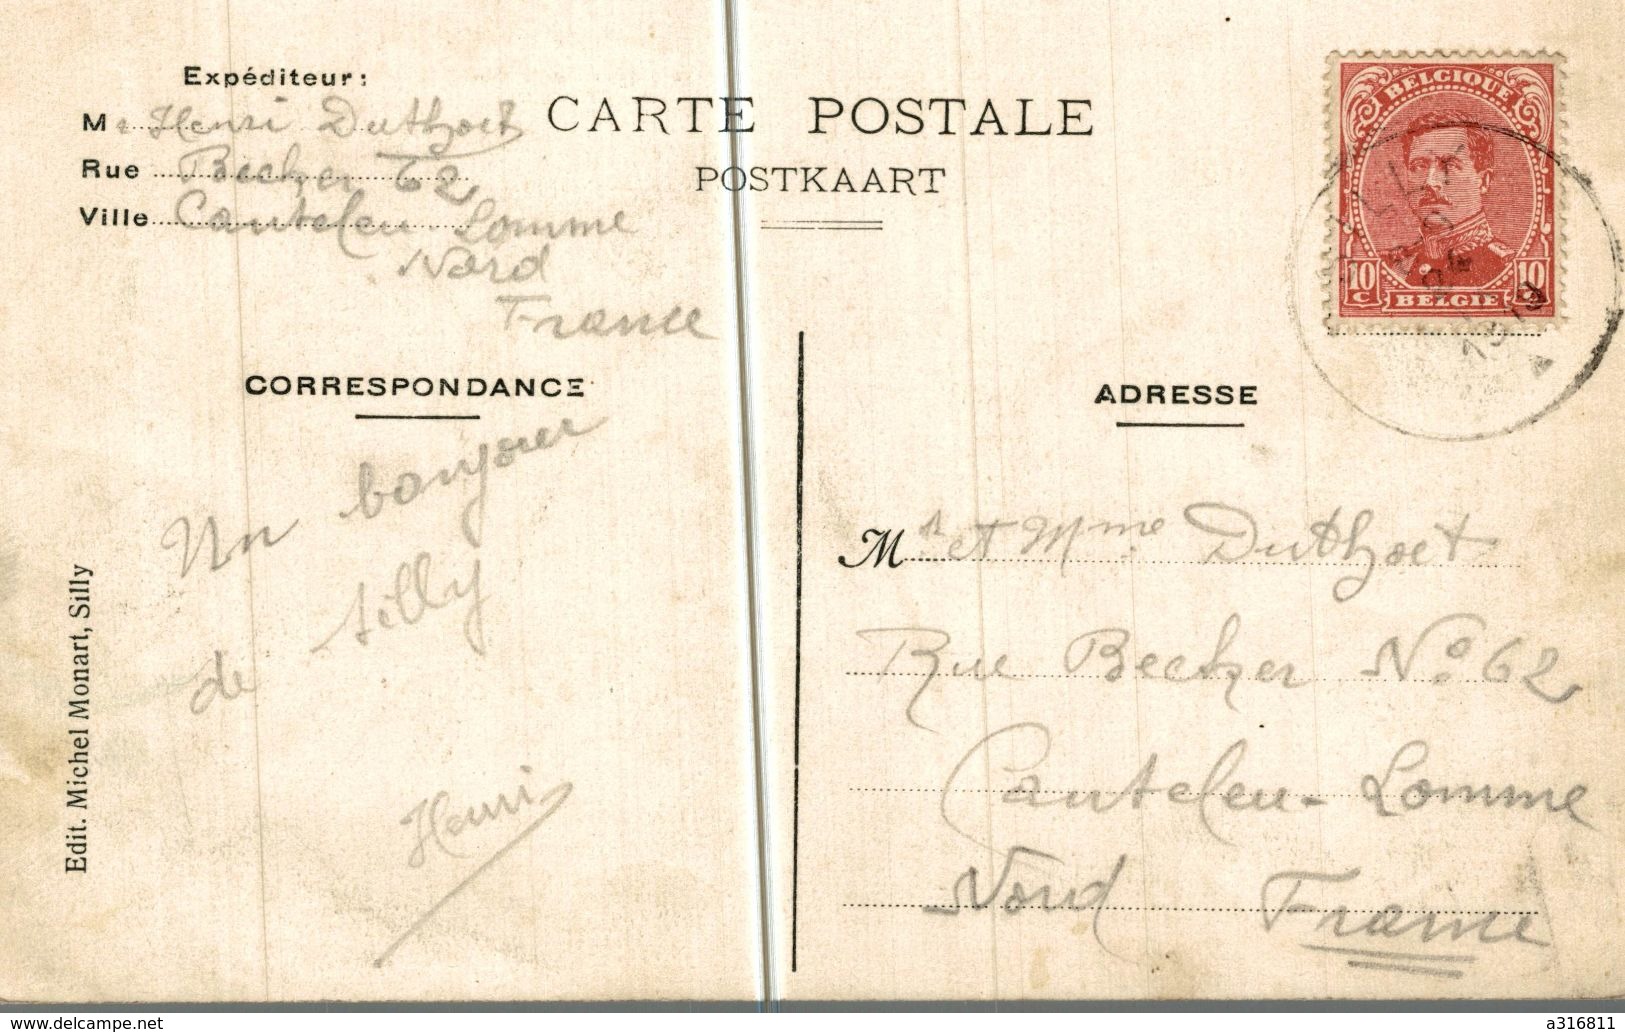 Expéditeur:
M. Henri Duthoet
Rue Becker 62
Ville Canteleu Lomme
Nord
France
CARTE POSTALE
POSTKAART
BELGIQUE
10 c
10 c
BELGIE
1919
CORRESPONDANCE
Un bonjour
de Silly
Henri
Edit. Michel Monart, Silly
ADRESSE
Mr et Mme Duthoet
Rue Becker No 62
Canteleu-Lomme
Nord France
www.delcampe.net
a316811